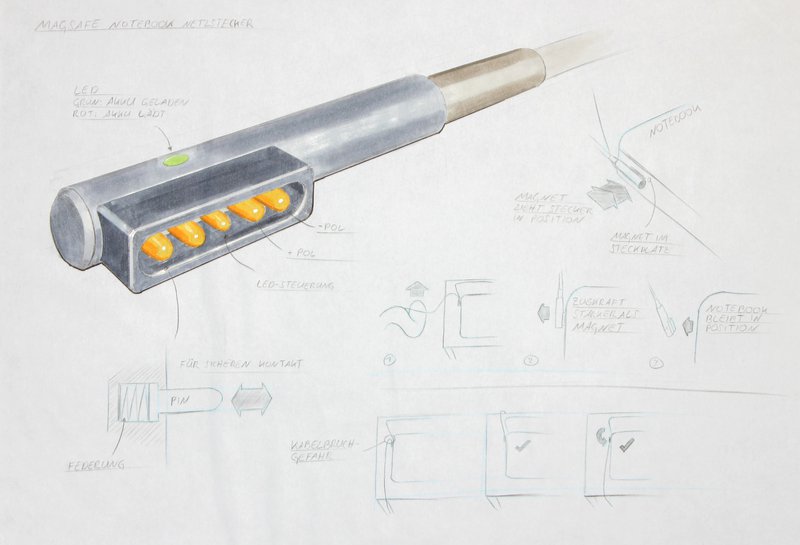 MAGSAFE NOTEBOOK NETZSTECKER
LED
GRÜN: AKKU GELADEN
ROT: AKKU LÄDT
-POL
+ POL
LED-STEUERUNG
NOTEBOOK
MAGNET
ZIEHT STECKER
IN POSITION
MAGNET IM
STECKPLATZ
ZUGKRAFT
STÄRKER ALS
MAGNET
NOTEBOOK
BLEIBT IN
POSITION
1
2
3
FÜR SICHEREN KONTAKT
PIN
FEDERUNG
KABELBRUCH-
GEFAHR